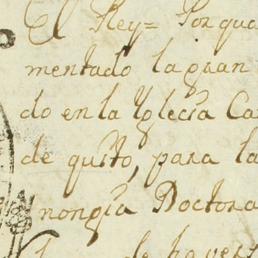 El Rey= Por qua
mentado la gran
do en la Yglecia Ca
de quito, para la
nongia Doctora
de havers